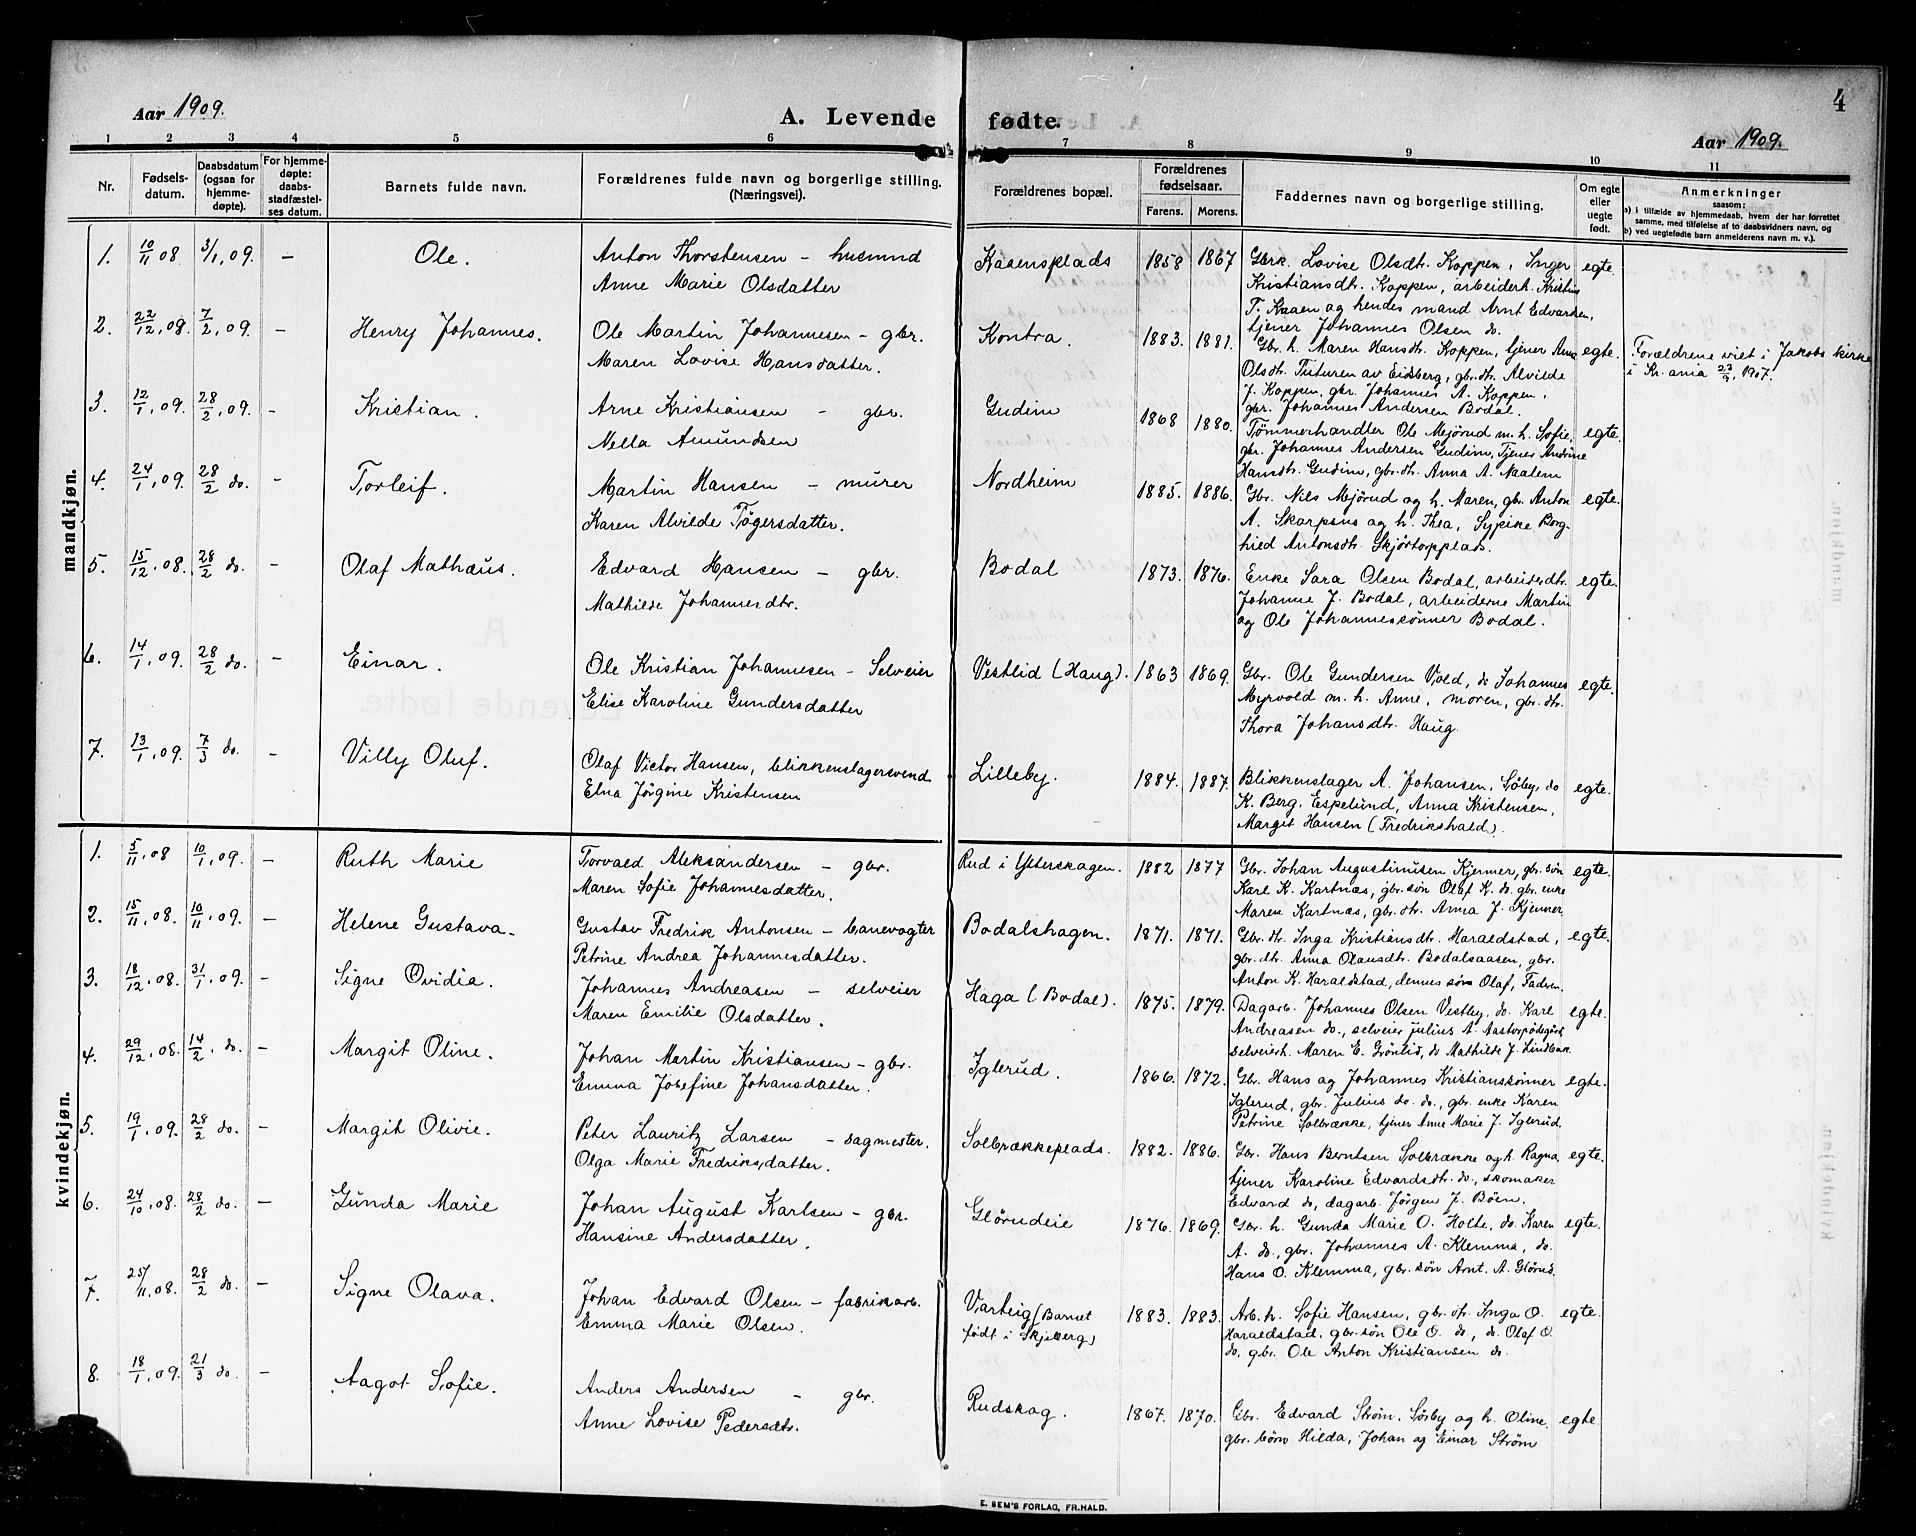 4
Aar 1909.
A. Levende fødte.
Aar 1909.
1 2 3 4 5 6 7 8 9 10 11
Nr.
Fødsels-
datum.
Daabsdatum
(ogsaa for
hjemme-
døpte).
For hjemme-
døpte:
daabs-
stadfæstel-
ses datum.
Barnets fulde navn.
Forældrenes fulde navn og borgerlige stilling.
(Næringsvei).
Forældrenes bopæl.
Forældrenes
fødselsaar.
Farens. Morens.
Faddernes navn og borgerlige stilling.
Om egte
eller
uegte
født.
Anmerkninger
saasom:
a) i tilfælde av hjemmedaab, hvem der har forrettet
samme, med tilføielse af to daabsvidners navn, og
b) ved uegtefødte barn anmelderens navn m. v.).
mandkjøn.
1. 10/11 08. 3/1, 09. – Ole. Anton Thorstensen – husmnd Kaaensplads 1858 1867 Gbrk. Lovise Olsdt. Koppen, Inger egte.
Anne Marie Olsdatter Kristiansdt. Koppen, arbeiderh. Kristine
T. Kaaen og hendes mand Arnt Edvardsen,
tjener Johannes Olsen do.
2. 22/12, 08. 7/2, 09. – Henry Johannes. Ole Martin Johannesen – gbr. Kontra. 1883. 1881. Gbr. h. Maren Hansdt. Koppen, tjener Anna egte. Forældrene viet i Jakobs kirke
Maren Lovise Hansdatter. Olsdtr. Tuturen av Eidsberg, gbr. dtr. Alvilde i Kr.ania 23/2, 1907.
J. Koppen, gbr. Johannes A. Koppen,
gbr. Johannes Andersen Bodal.
3. 12/1, 09. 28/2, 09. – Kristian. Arne Kristiansen – gbr. Gudim 1868 1880. Tømmerhandler Ole Mejørud m. h. Sofie, egte.
Nella Amundsen gbr. Johannes Andersen Gudim, Tjener Andrine
Hansdtr. Gudim, gbr. dtr. Anna A. Naalem
4. 24/1, 09. 28/2 do. – Torleif. Martin Hansen – murer Nordheim 1885. 1886. Gbr. Nils Mejørud og h. Maren, gbr. Anton egte.
Karen Alvilde Tøgersdatter. A. Skarpsns og h. Thea, Sypike Borg-
hild Antonsdtr. Skjørtorpplads.
5. 15/12, 08. 28/2 do. – Olaf Mathæus. Edvard Hansen – gbr. Bodal 1873. 1876. Enke Sara Olsen Bodal, arbeiderdtr. egte.
Mathilde Johannesdtr. Johanne J. Bodal, arbeiderne Martin
og Ole Johannessønner Bodal.
6. 14/1, 09. 28/2 do. – Einar. Ole Kristian Johannesen – Selveier Vestlid (Haug). 1863 1869. Gbr. Ole Gundersen Vold, do Johannes egte.
Elise Karoline Gundersdatter Myrvold m. h. Anne, moren, gbr. dtr.
Thora Johansdtr. Haug.
7. 13/1, 09. 7/3 do. – Villy Oluf. Olaf Victor Hansen, blikkenslagersvend. Lilleby. 1884. 1887. Blikkenslager A. Johansen, Sjøby, do egte.
Elna Jørgine Kristensen K. Berg, Espelund, Anna Kristensen,
Margit Hansen (Fredrikshald).
kvindekjøn.
1. 5/11, 08 10/1, 09. – Ruth Marie Torvald Aleksandersen – gbr. Rud i Ytterskogen. 1882 1877 Gbr. Johan Augustinusen Kjenner, gbr. søn egte.
Maren Sofie Johannesdatter. Karl K. Kartnæs, gbr. søn Olaf K. do. gbr. enke
Maren Kartnæs, gbr. dtr. Anna J. Kjenner
2. 15/11, 08. 10/11, 09. – Helene Gustava. Gustav Fredrik Antonsen – banevogter Bodalshagen. 1871. 1871. Gbr. dtr. Inga Kristiansdtr. Haraldstad, egte.
Petrine Andrea Johannesdatter. gbr. dtr. Anna Olausdtr. Bodalsaasen, gbr.
Anton K. Haraldstad, dennes søn Olaf, Faderen.
3. 18/12, 08. 31/1, 09. – Signe Ovidia. Johannes Andreasen – selveier Haga (Bodal). 1875. 1879. Dagarb. Johannes Olsen Vestby, do. Karl egte.
Maren Emilie Olsdatter. Andreasen do., selveier Julius A. Aastorpødegård,
selveierh. Maren E. Grønlid, do Mathilde J. Lindbæk
4. 29/12, 08. 14/2, do. – Margit Oline. Johan Martin Kristiansen – gbr. Iglerud. 1866. 1872. Gbr. Hans og Johannes Kristianssønner egte.
Emma Josefine Johansdatter. Iglerud, gbr. Julius do. do., gbr. enke Karen
Petrine Solbrække, tjener Anne Marie J. Iglerud.
5. 19/1, 09. 28/2 do. – Margit Olivie. Peter Lauritz Larsen – sagmester. Solbrækkeplads. 1882. 1886. Gbr. Hans Berntsen Solbrække og h. Ragna, egte.
Olga Marie Fredriksdatter. tjener Karoline Edvardsdtr. do., skomaker
Edvard do, dagarb. Jørgen J. Bøen.
6. 24/10, 08. 28/2 do. – Gunda Marie Johan August Karlsen – gbr. Glørudeie 1876. 1869. Gbr. h. Gunda Marie O. Holte, do. Karen egte.
Hansine Andersdatter. A. do., gbr. Johannes A. Klemma, do.
Hans O. Klemma, gbr. søn Arnt. A. Glørud.
7. 25/11, 08. 28/2 do. – Signe Olava. Johan Edvard Olsen – fabrikarb. Varteig (Barnet 1883. 1883. Arb. h. Sofie Hansen, gbr. dtr. Inga O. egte.
Emma Marie Olsen. født i Skjeberg) Haraldstad, gbr. søn Ole O. do, do. Olaf O.
do, gbr. Ole Anton Kristiansen do.
8. 18/1, 09. 21/3 do. – Aagot Sofie. Anders Andersen – gbr. Rudskog. 1867. 1870. Gbr. Edvard Strøm, Sørby og h. Oline. egte.
Anne Lovise Pedersdtr. gbr. børn Hilda, Johan og Einar Strøm
E. SEM'S FORLAG, FR.HALD.